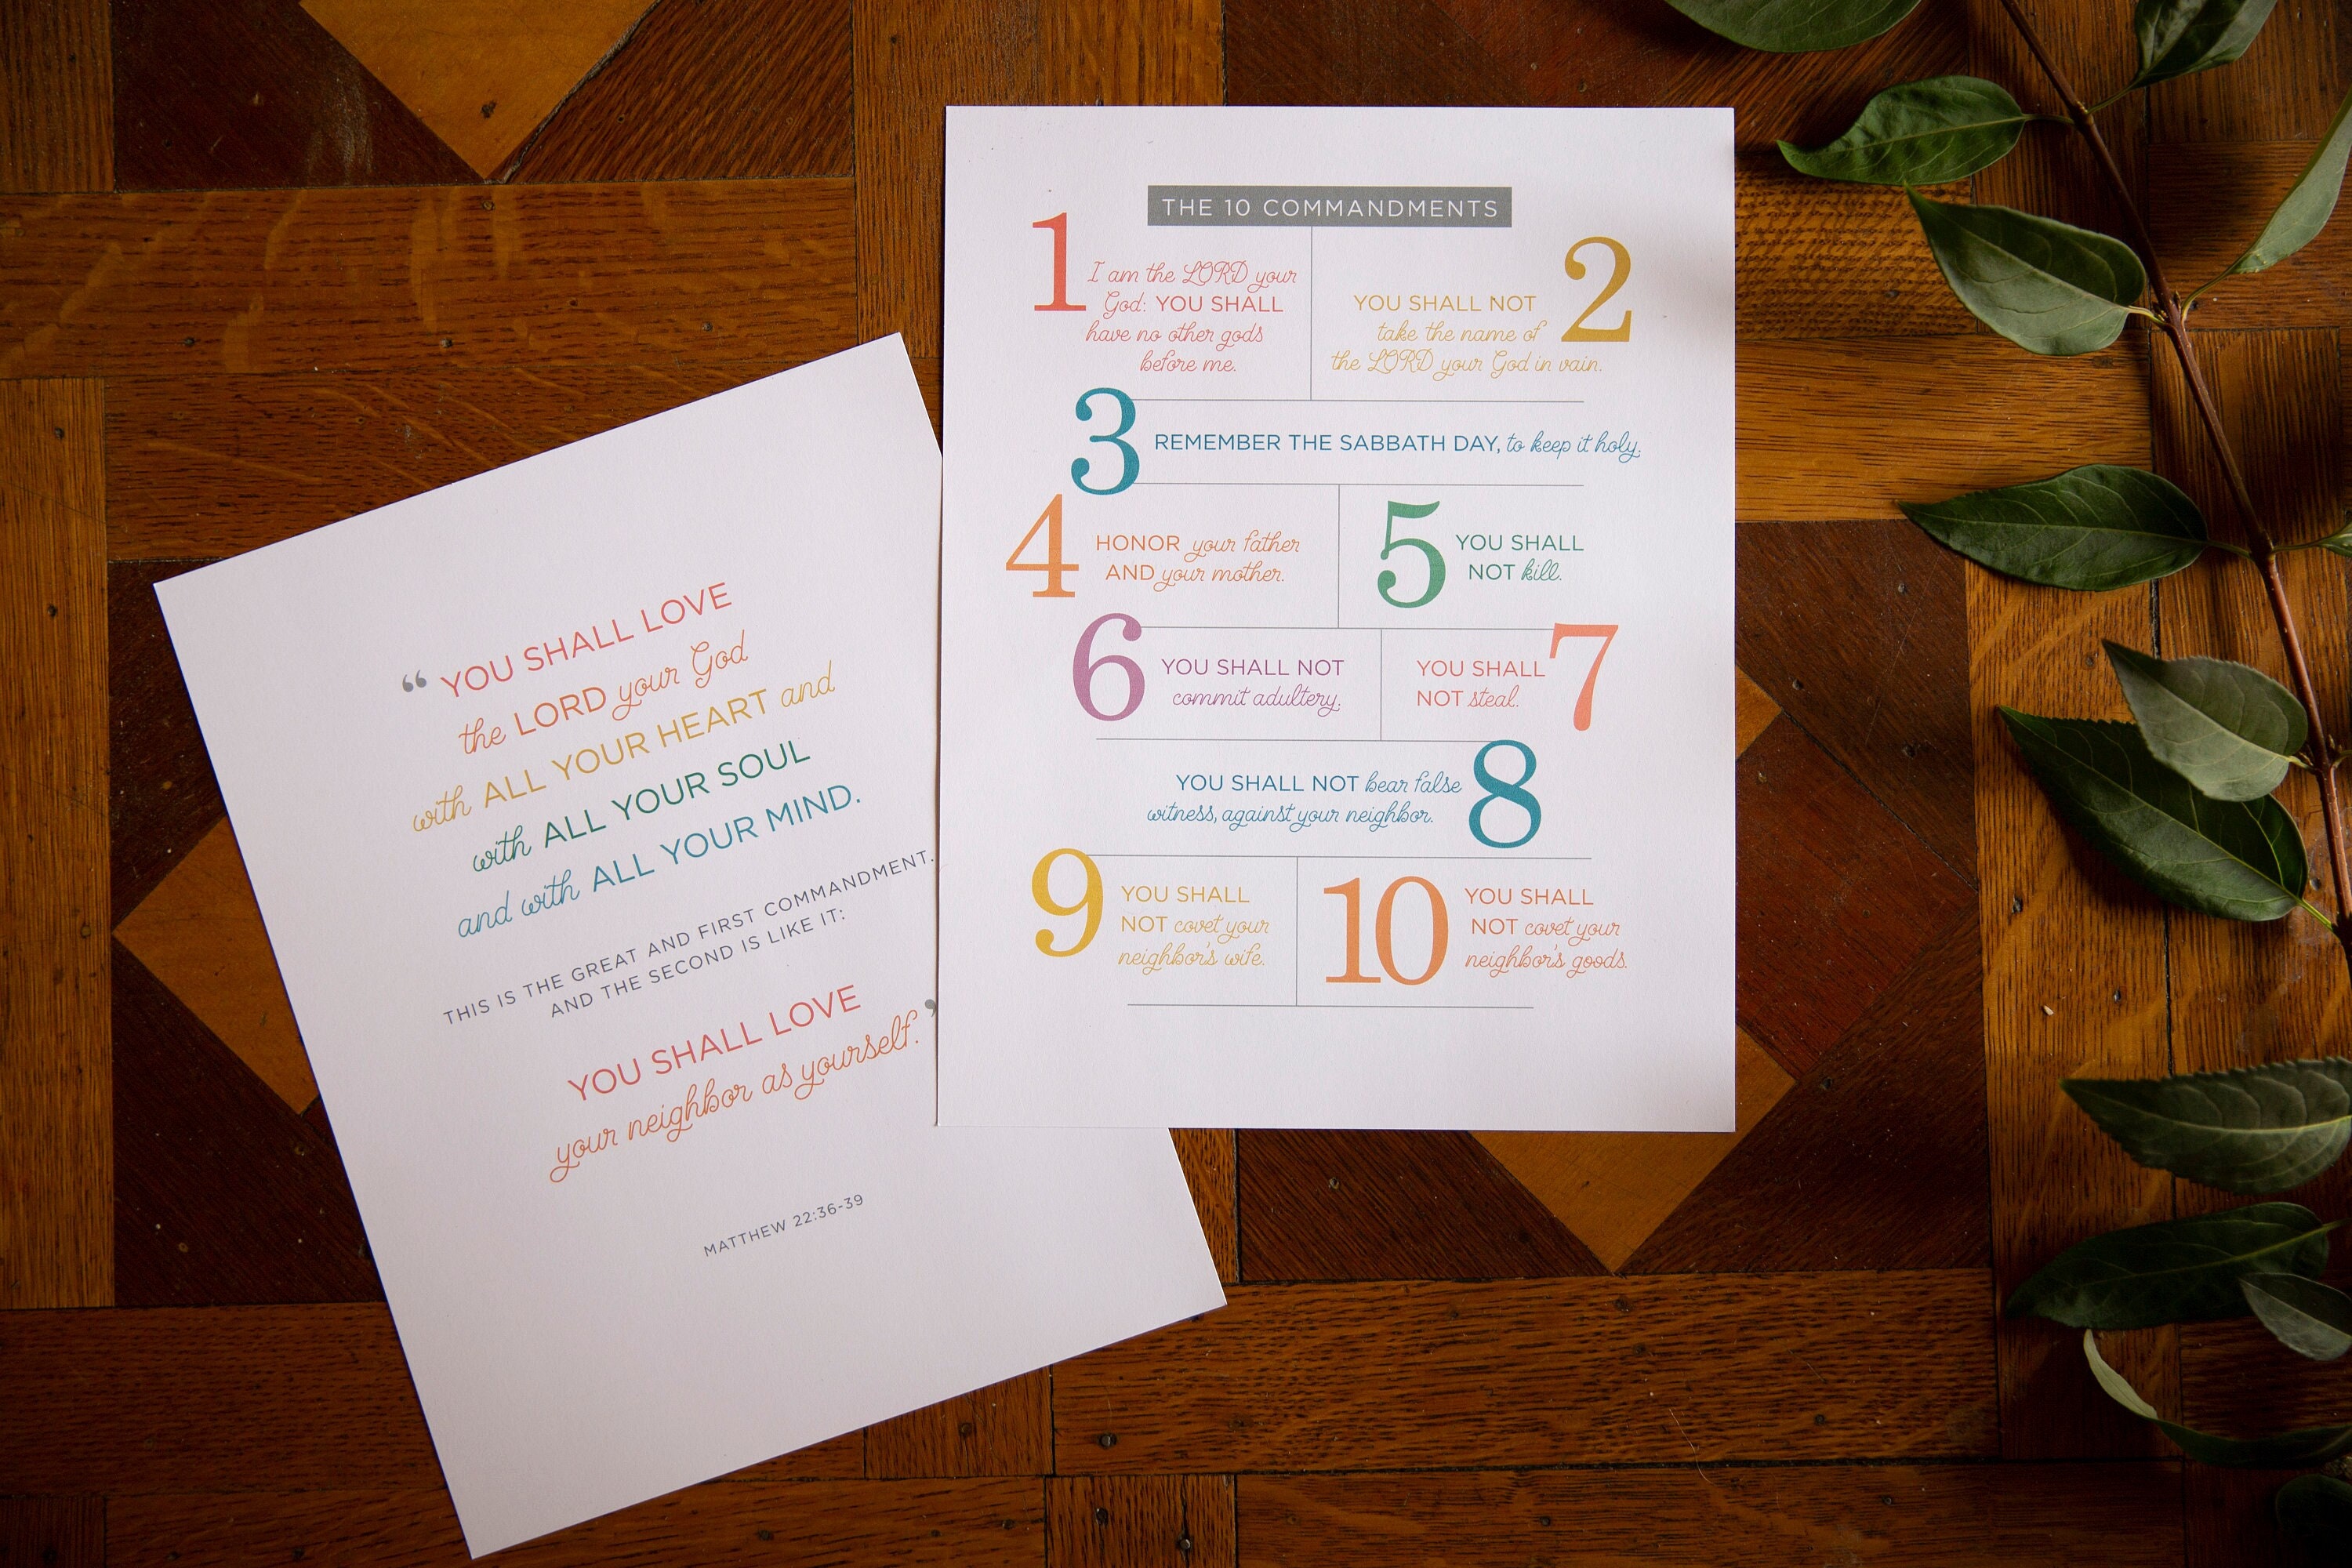 “ YOU SHALL LOVE
the LORD your God
with ALL YOUR HEART and
with ALL YOUR SOUL
and with ALL YOUR MIND.
THIS IS THE GREAT AND FIRST COMMANDMENT.
AND THE SECOND IS LIKE IT:
YOU SHALL LOVE
your neighbor as yourself.’
MATTHEW 22:36-39
THE 10 COMMANDMENTS
1
I am the LORD your
God: YOU SHALL
have no other gods
before me.
2
YOU SHALL NOT
take the name of
the LORD your God in vain.
3
REMEMBER THE SABBATH DAY, to keep it holy.
4
HONOR your father
AND your mother.
5
YOU SHALL
NOT kill.
6
YOU SHALL NOT
commit adultery.
7
YOU SHALL
NOT steal.
8
YOU SHALL NOT bear false
witness, against your neighbor.
9
YOU SHALL
NOT covet your
neighbor's wife.
10
YOU SHALL
NOT covet your
neighbor's goods.